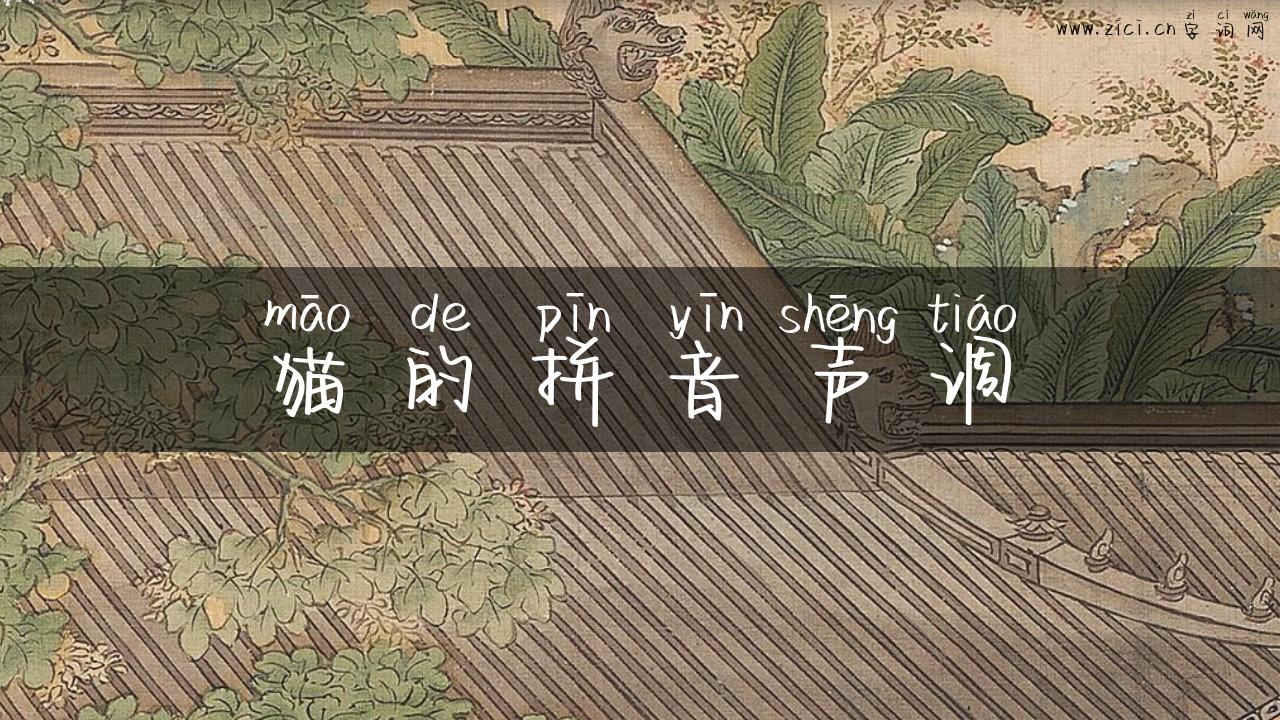 zì cí wǎng
www.zici.cn 字词网
māo de pīn yīn shēng tiáo
猫的拼音声调